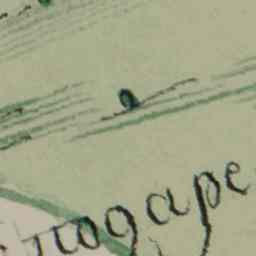 подаре